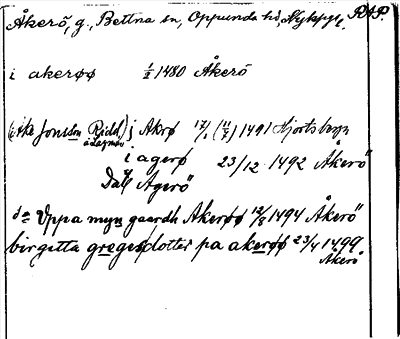 Åkerö, g., Bettna sn, Oppunda hd, Nyköp. l. RAP.
i akerøø 1/2 1480 Åkerö
(Åke Jonsson Ridd.) i Akrø 17/1 (11/7) 1491 Hjortsberga
i agerø 23/12 1492 Åkerö
Dat Agerö
ds Uppa myn gaardh Akerøø 12/5 1494 Åkerö
birgitta gregersdotter pa akerøø 23/4 1499
Åkerö